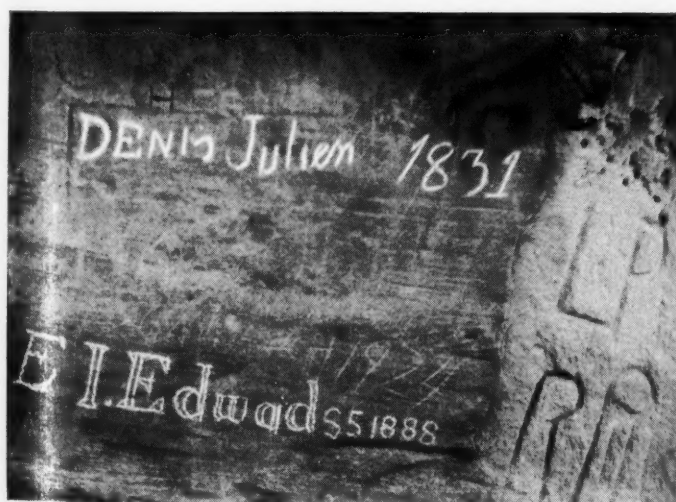 DENis Julien 1831
1924
E I.Edwad S51888